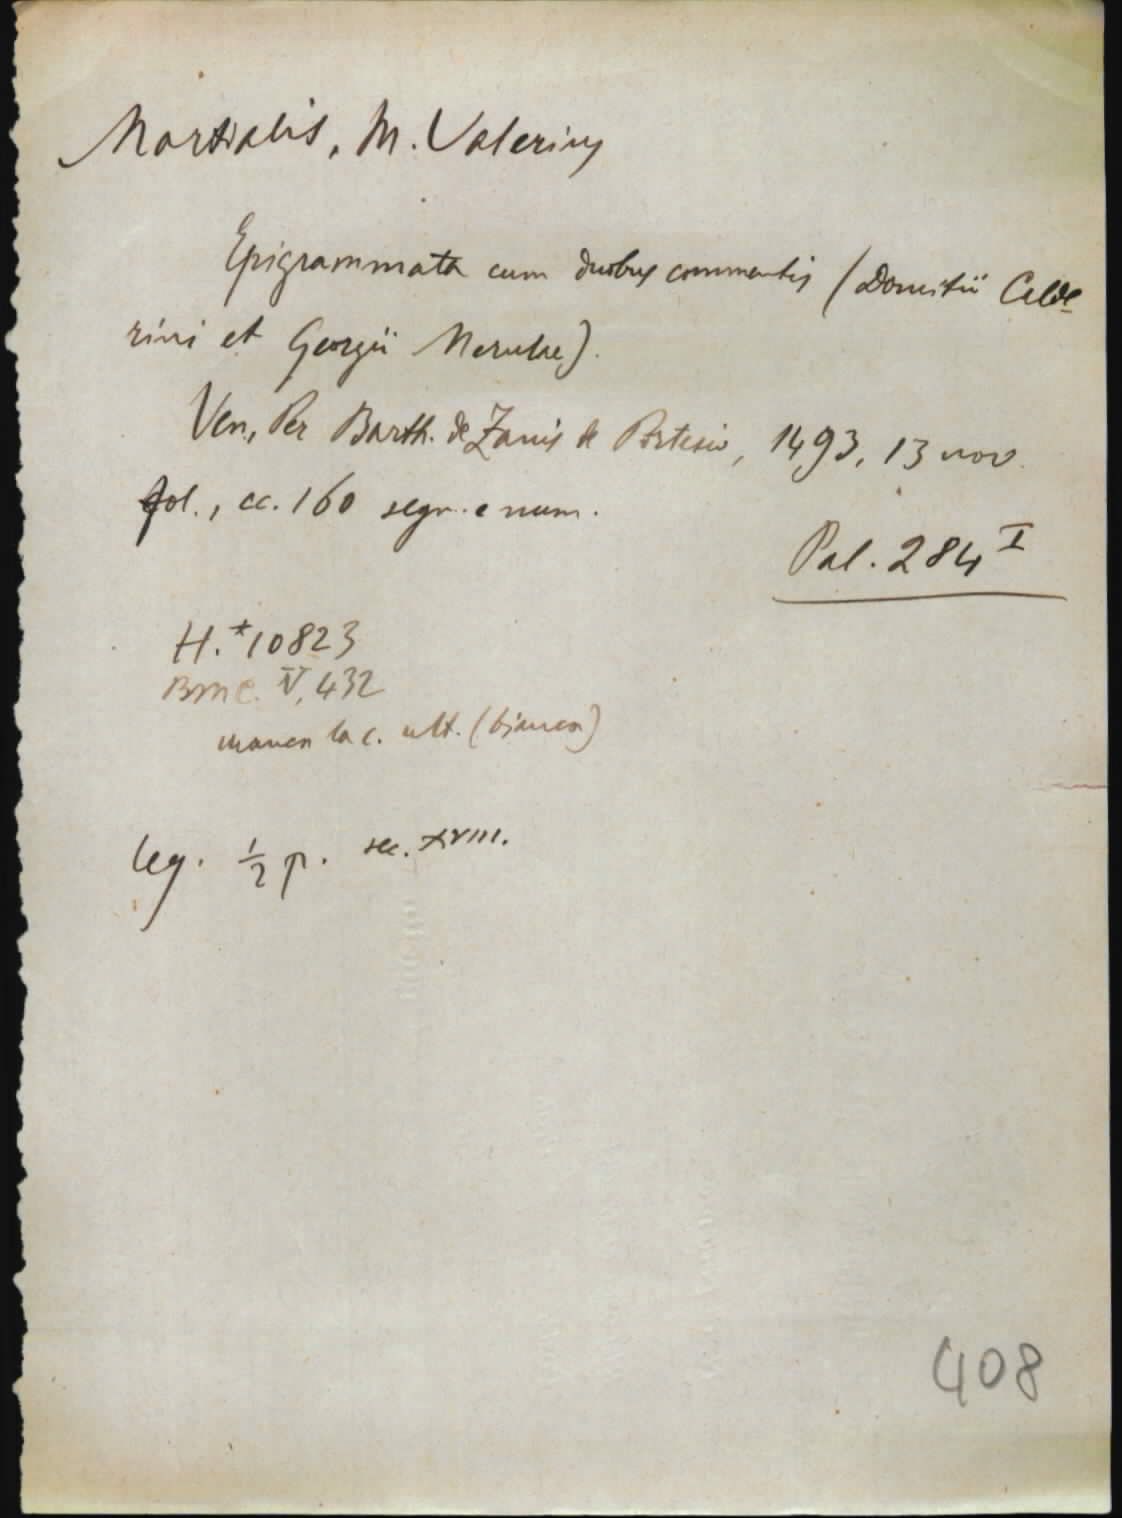 Martialis, M. Valerius
Epigrammata cum duobus commentis (Domitii Calde-
rini et Georgii Merulae).
Ven., Per Barth. de Zanis de Portesio, 1493, 13 nov.
fol., cc. 160 segn. e num.
Pal. 284 I
H. *10823
BMC. V, 432
manca la c. ult. (bianca)
leg. 1/2 p. sec. XVIII.
408